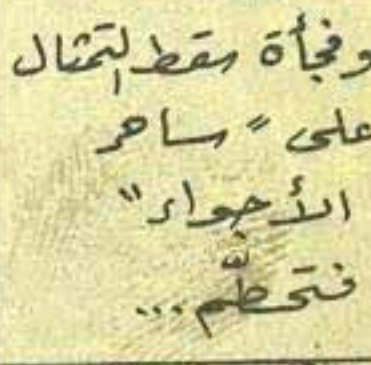 وفجأة سقط التمثال
على "ساحر
الأجواء"
فتحطّم...